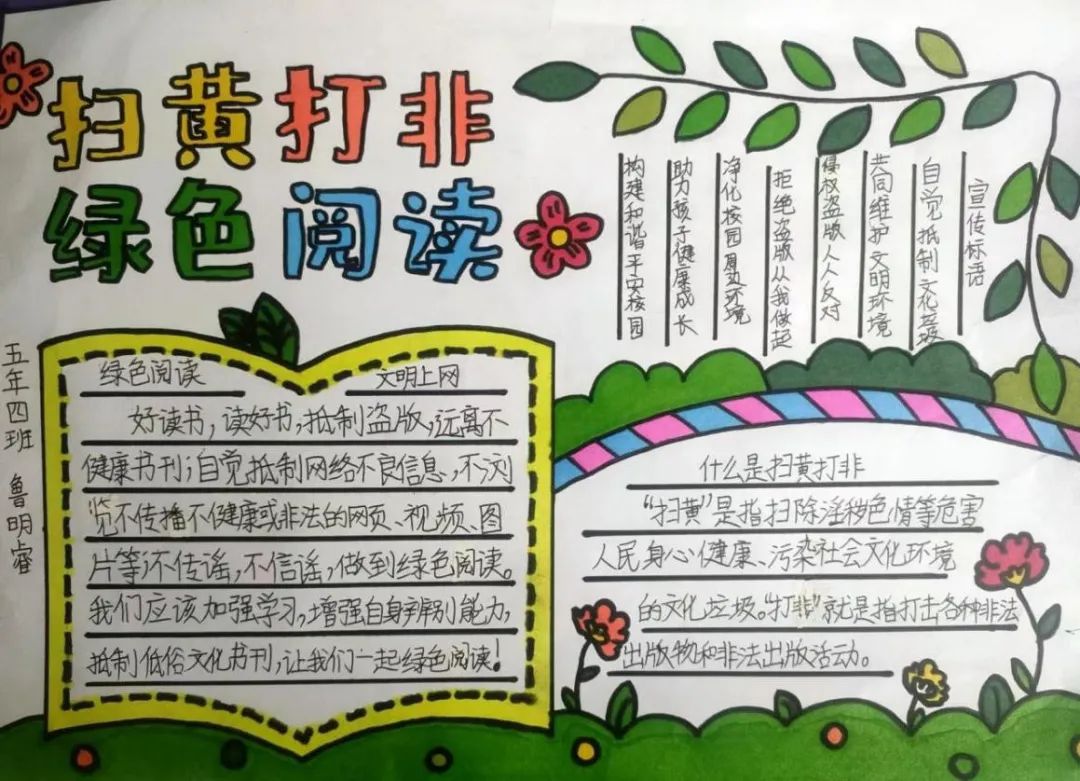 扫黄打非
绿色阅读
五年四班 鲁明睿
绿色阅读 文明上网
好读书，读好书，抵制盗版，远离不
健康书刊；自觉抵制网络不良信息，不浏
览不传播不健康或非法的网页、视频、图
片等；不传谣，不信谣，做到绿色阅读。
我们应该加强学习，增强自身辨别能力，
抵制低俗文化书刊，让我们一起绿色阅读！
宣传标语
自觉抵制文化垃圾
共同维护文明环境
侵权盗版人人反对
拒绝盗版从我做起
净化校园周边环境
助力孩子健康成长
构建和谐平安校园
什么是扫黄打非
“扫黄”是指扫除淫秽色情等危害
人民身心健康、污染社会文化环境
的文化垃圾。“打非”就是指打击各种非法
出版物和非法出版活动。